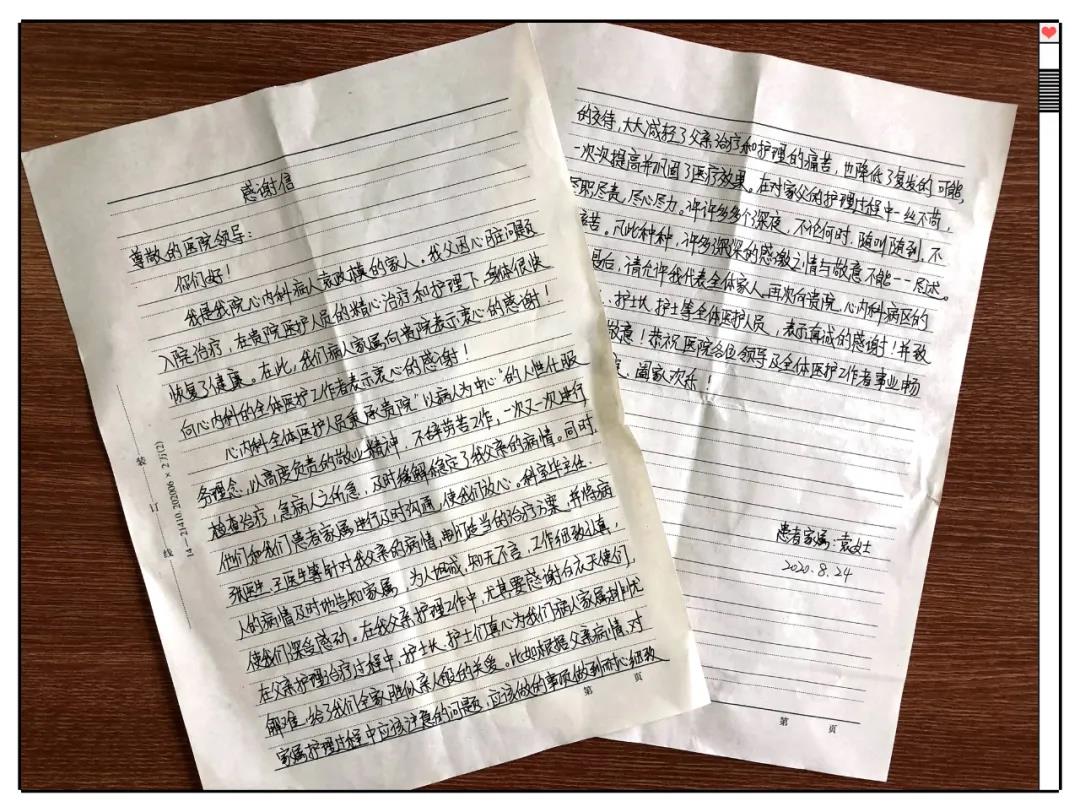 感谢信
尊敬的医院领导：
你们好！
我是我院心内科病人袁政模的家人。我父因心脏问题
入院治疗，在贵院医护人员的精心治疗和护理下，身体很快
恢复了健康。在此，我们病人家属向贵院表示衷心的感谢！
向心内科的全体医护工作者表示衷心的感谢！
心内科全体医护人员秉承贵院“以病人为中心”的人性化服
务理念，以高度负责的敬业精神，不辞劳苦工作，一次又一次进行
检查治疗，急病人之所急，及时缓解稳定了我父亲的病情。同时，
他们和我们患者家属进行及时沟通，使我们放心。科室毕主任、
张医生、王医生等针对我父亲的病情，制订适当的治疗方案，并将病
人的病情及时地告知家属，为人坦诚，知无不言，工作细致认真，
使我们深受感动。在我父亲护理工作中，尤其要感谢白衣天使们，
在父亲护理治疗过程中，护士长、护士们真心为我们病人家属排忧
解难，给了我们全家胜似亲人般的关爱。比如根据父亲病情，对
家属护理过程中应该注意的问题，应该做的事项做到耐心细致
第 页
装 订 线
14—21410 202006×2万(2)
的交待，大大减轻了父亲治疗和护理的痛苦，也降低了复发的可能，
一次次提高并巩固了医疗效果。在对家父的护理过程中一丝不苟，
尽职尽责，尽心尽力。许许多多个深夜，不论何时，随叫随到，不
苦。凡此种种，许多深深的感激之情与敬意不能一一尽述。
最后，请允许我代表全体家人，再次向贵院，心内科病区的
、护士长、护士等全体医护人员，表示真诚的感谢！并致
敬意！恭祝医院各位领导及全体医护工作者事业畅
、阖家欢乐！
患者家属：袁女士
2020.8.24
第 页